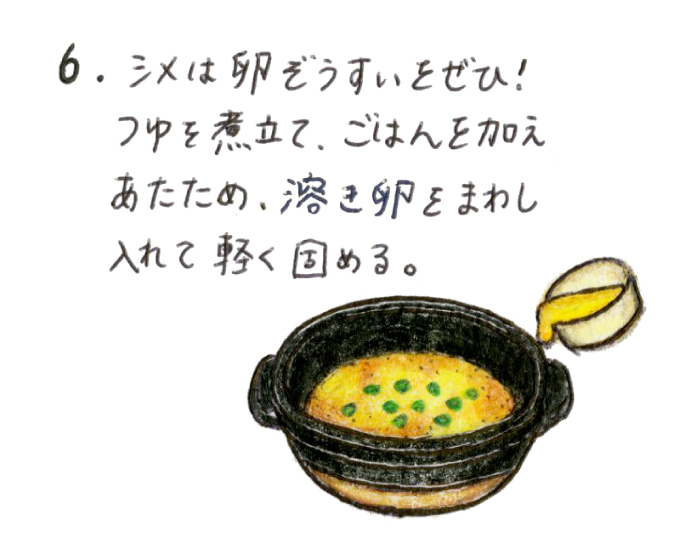 6. シメは卵ぞうすいをぜひ!
つゆを煮立て、ごはんを加え
あたため、溶き卵をまわし
入れて軽く固める。